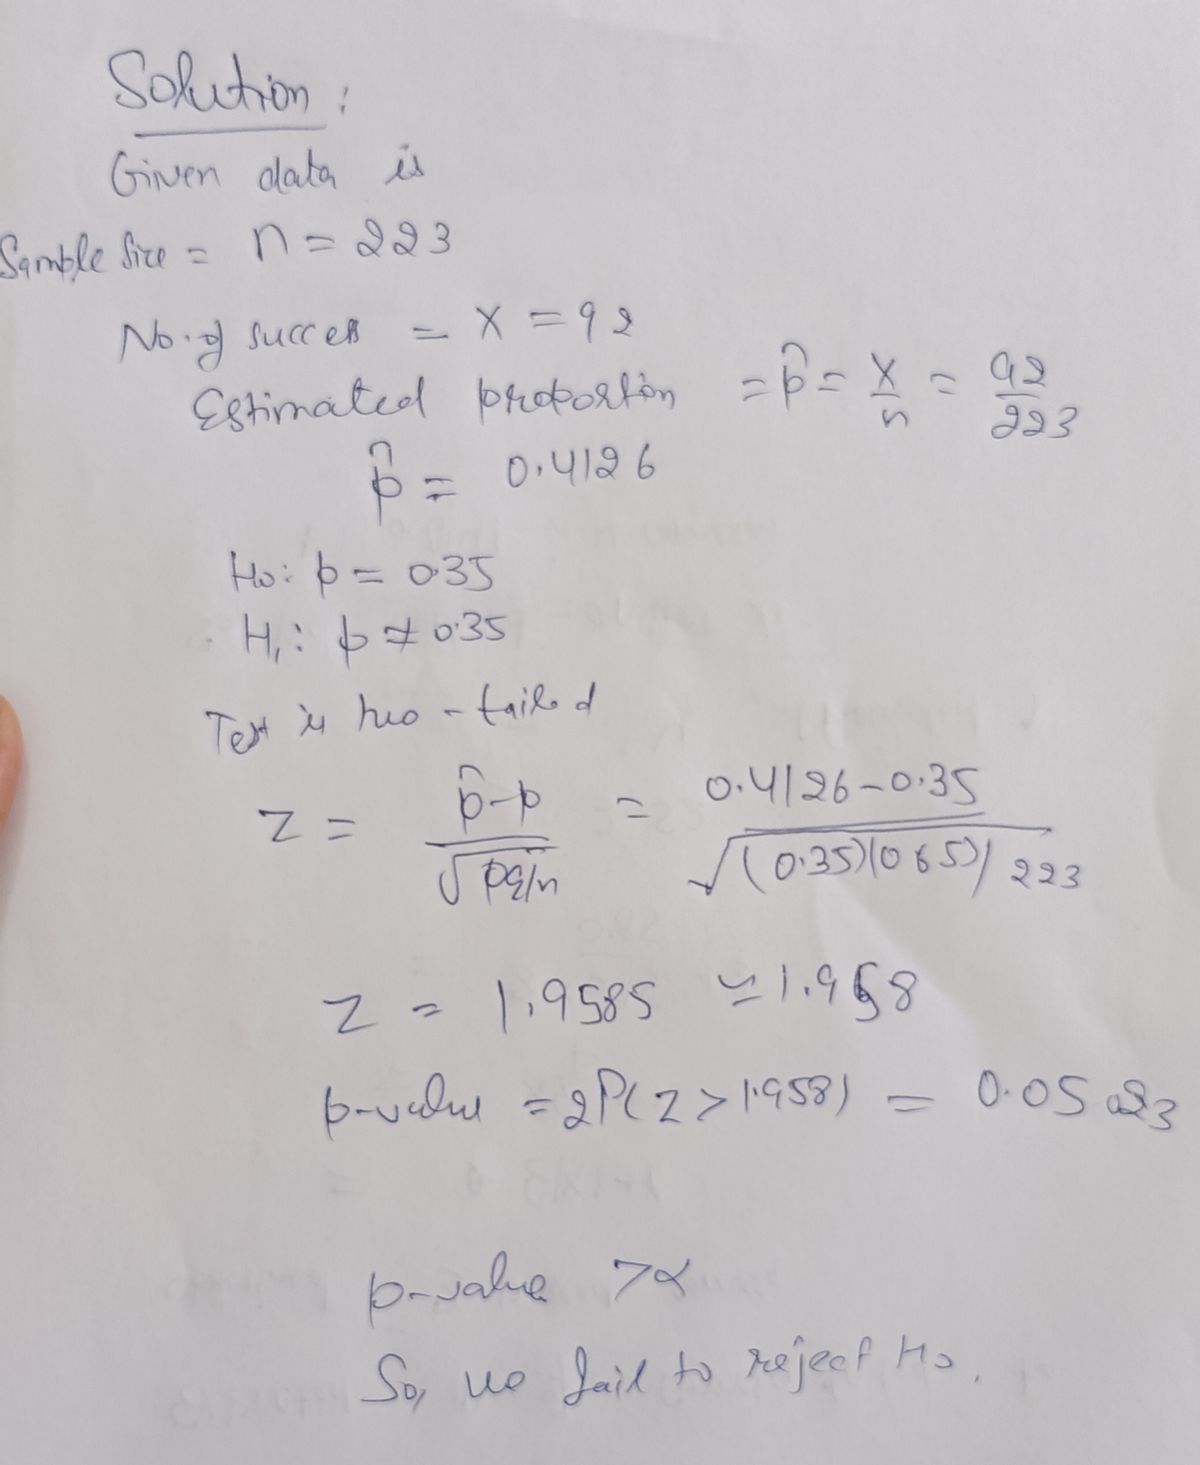 Solution :
Given data is
Sample Size = n = 223
No. of succes = X = 92
Estimated proportion = p̂ = X/n = 92/223
p̂ = 0.4126
H0: p = 0.35
H1: p ≠ 0.35
Test is two-tailed
Z = (p̂-p)/√(pq/n) = (0.4126-0.35)/√((0.35)(0.65)/223)
Z = 1.9585 ≃ 1.958
p-value = 2P(Z > 1.958) = 0.0523
p-value > α
So, we fail to reject H0.